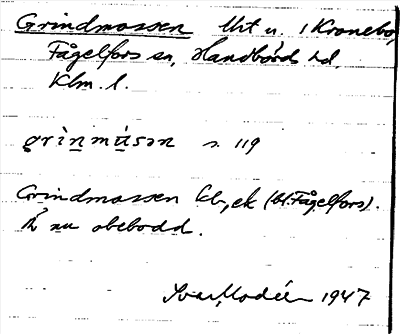 Grindmossen Uht u. 1 Kronebo,
Fågelfors sn, Handbörd hd.
Klm. l.
grìnmúsən s. 119
Grindmossen kb, ek (bl. Fågelfors).
Är nu obebodd.
Ivar Modéer 1947